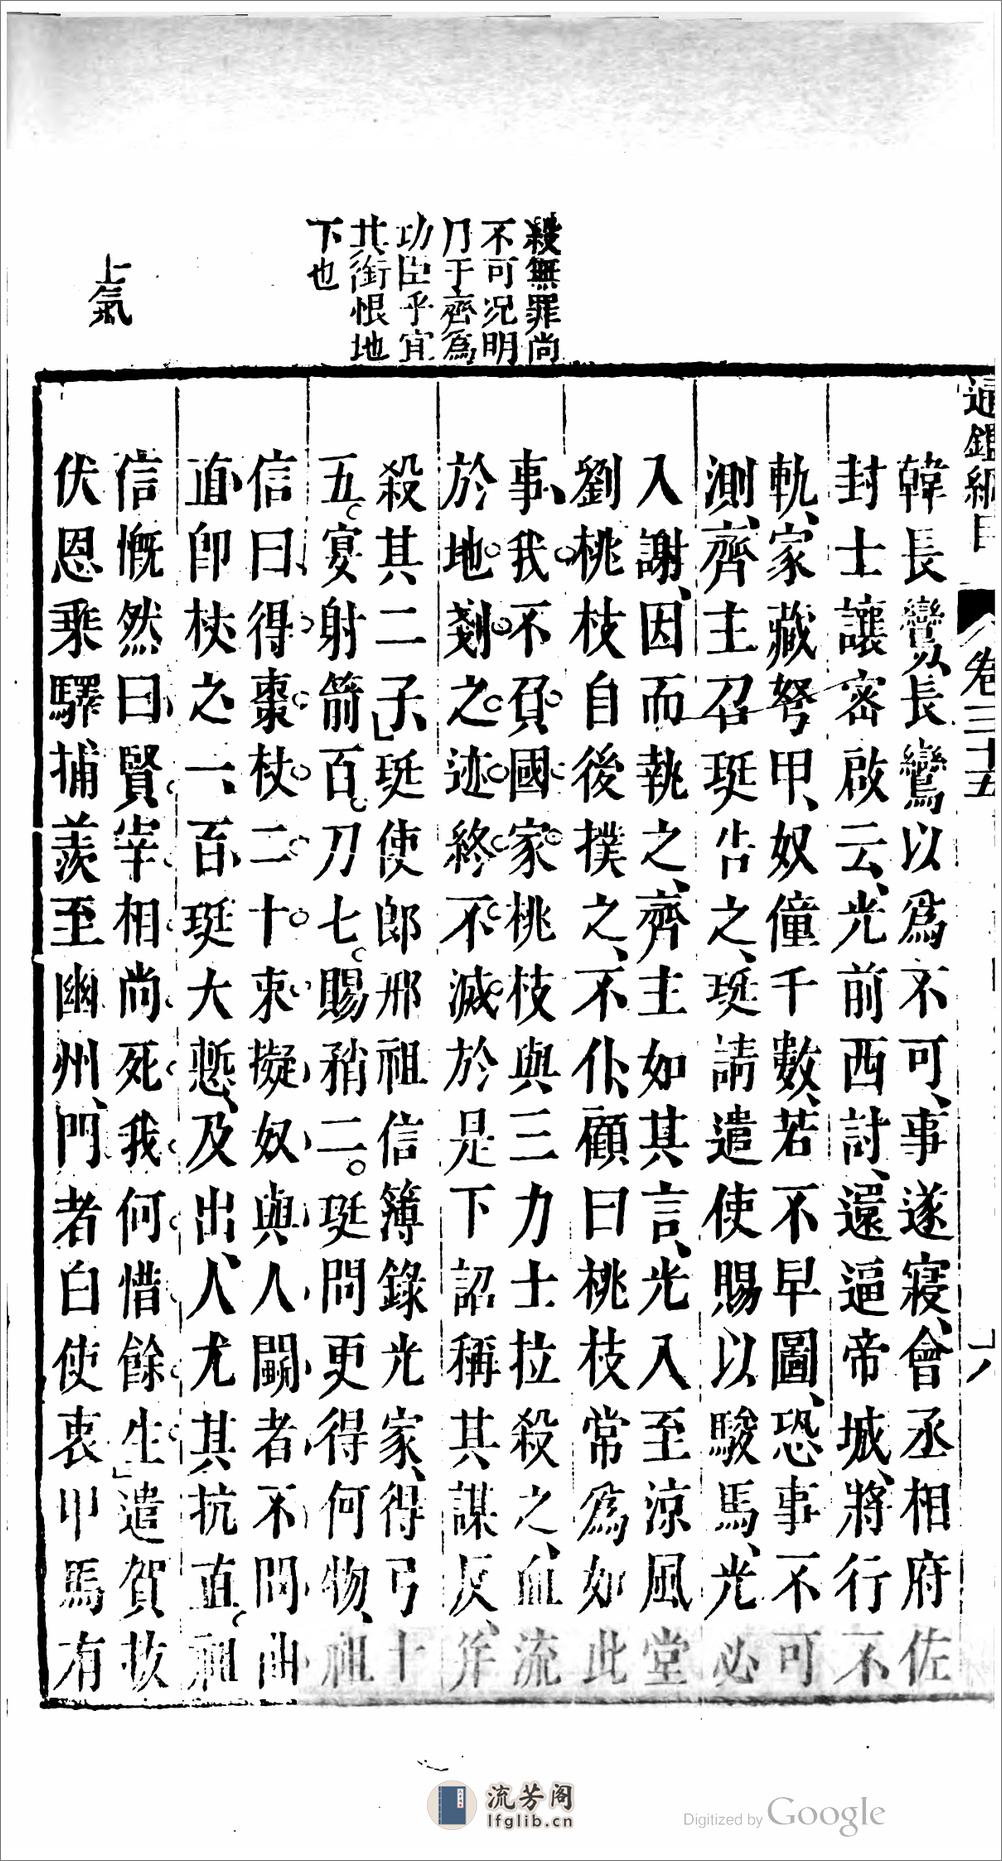 通鑑綱目 卷三十五
韓長鸞長鸞以爲不可事遂寢會丞相府佐
封士讓密啟云光前西討還逼帝城將行不
軌家藏弩甲奴僮千數若不早圖恐事不可
測齊主召珽告之珽請遣使賜以駿馬光必
入謝因而執之齊主如其言光入至涼風堂
劉桃枝自後撲之不仆顧曰桃枝常爲如此
事我不負國家桃枝與三力士拉殺之血流
於地剗之迹終不滅於是下詔稱其謀反并
殺其二子珽使郎邢祖信簿錄光家得弓十
五宴射箭百刀七賜矟二珽問更得何物祖
信曰得棗杖二十束擬奴與人鬬者不問曲
直卽杖之一百珽大慙及出人尤其抗直祖
信慨然曰賢宰相尚死我何惜餘生遣賀拔
伏恩乘驛捕羨至幽州門者白使衷甲馬有
殺無罪尚
不可況明
乃于齊爲
功臣乎宜
其銜恨地
下也
上氣
流芳阁
lfglib.cn
Digitized by Google